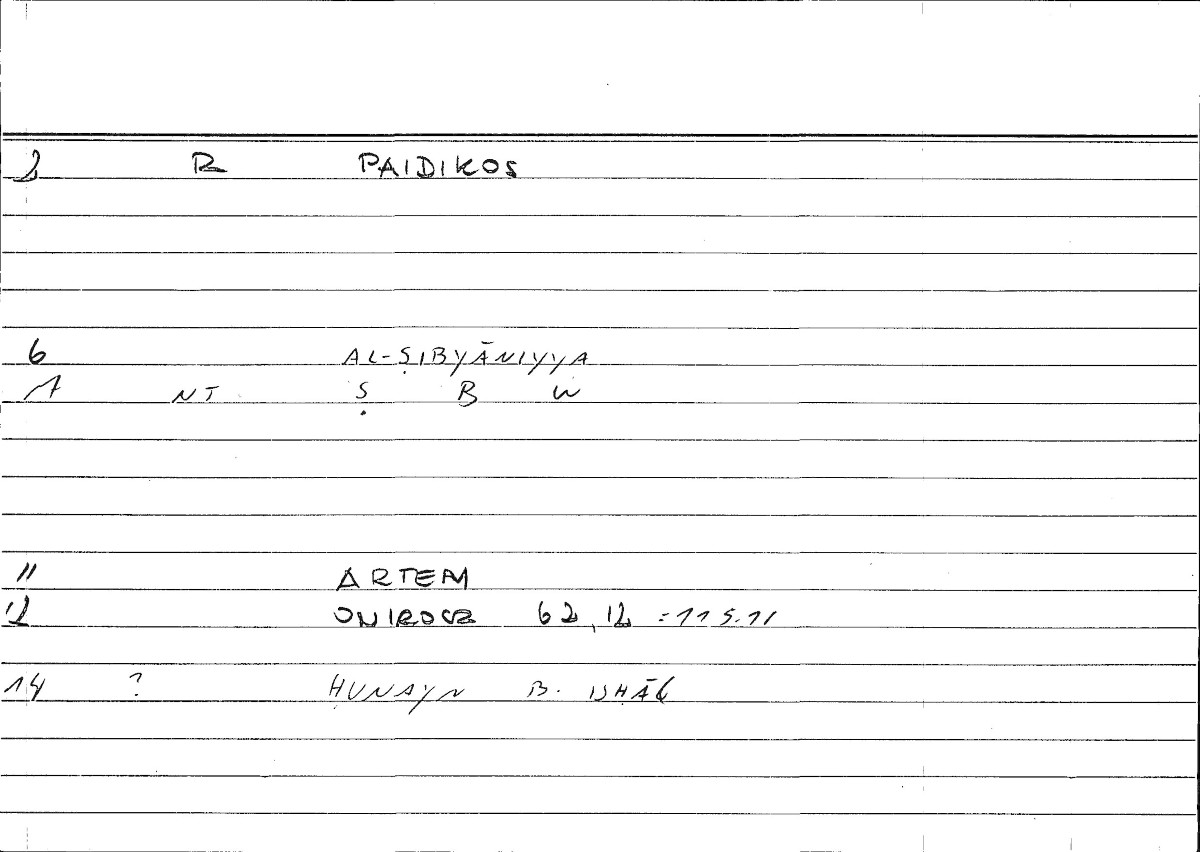 2 R PAIDIKOS
6 AL-ṢIBYĀNIYYA
7 NT Ṣ B W
11 ARTEM
12 ONIROCR 62,12 = 115.11
14 ? ḤUNAYN B. ISḤĀQ